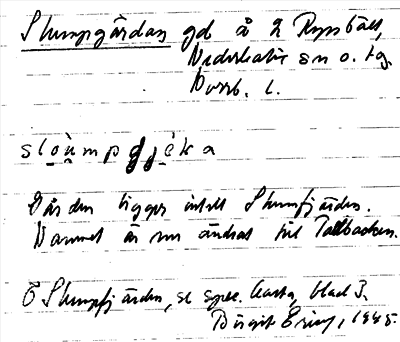 Slumpgården gd å 2 Rynbäck,
Nederkalix sn o. tg.
Norrb. l.
sloùmpgjéka
Gården ligger intill Slumpfjärden.
Namnet är nu ändrat till Tallbacken.
Slumpfjärden, se spec. karta, blad 3.
Birgit 1945.